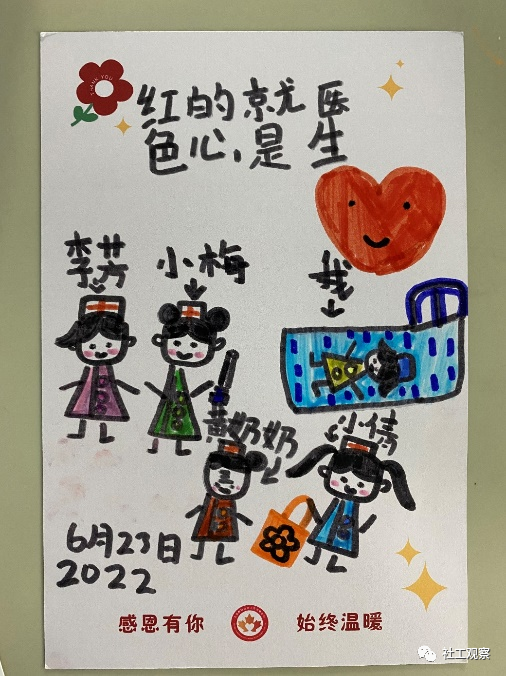 THANK YOU
红的就医
色心,是生
李芳
小梅
我
黄奶奶
小倩
6月23日
2022
感恩有你
始终温暖
社工观察